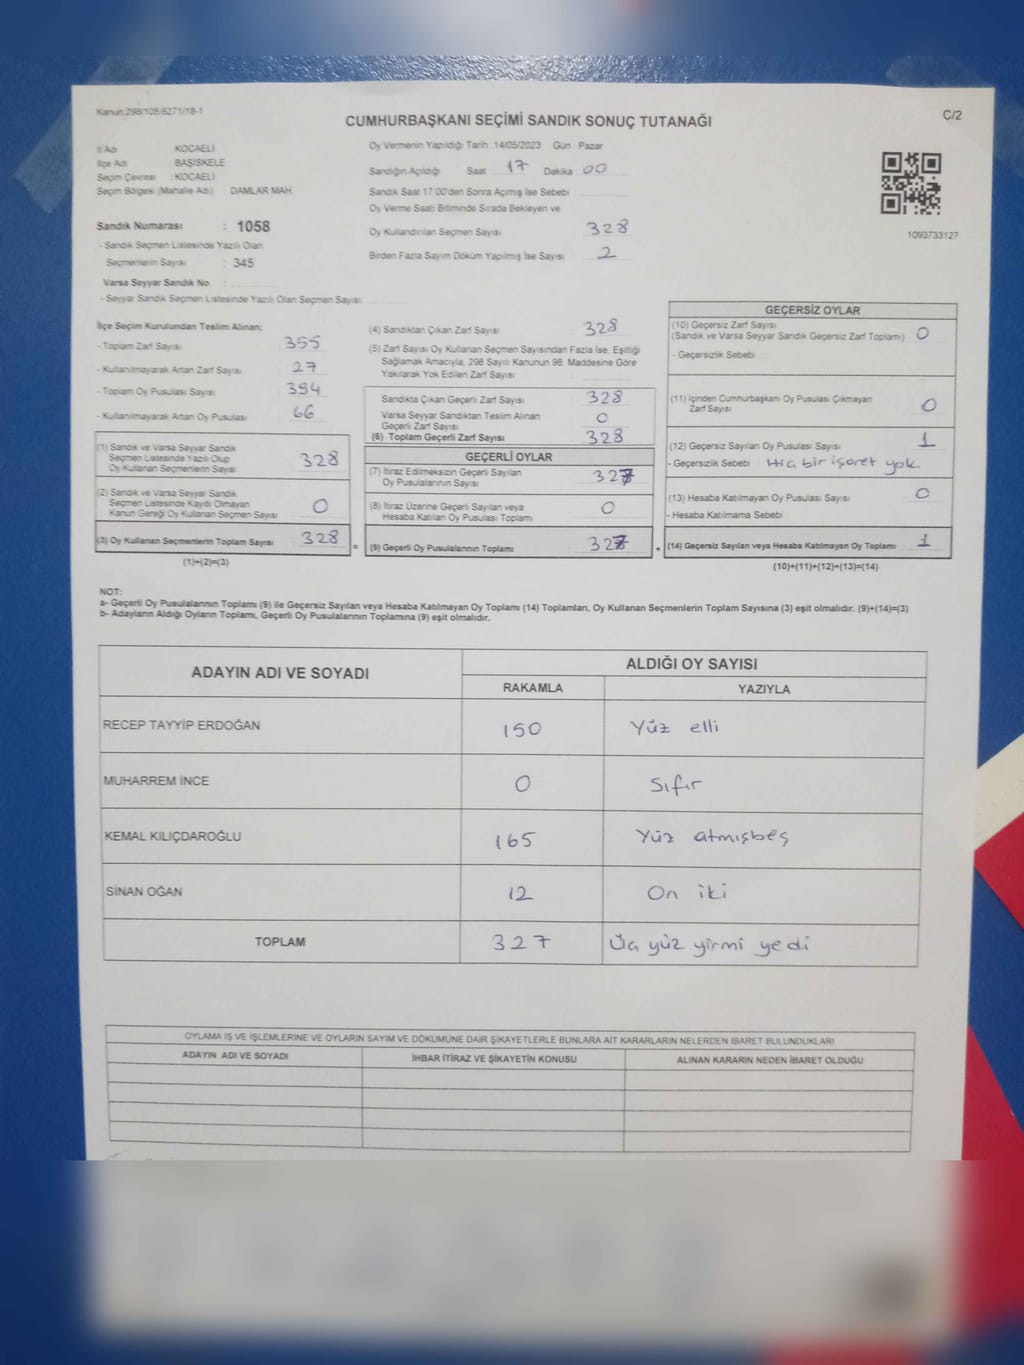 Kanun:298/105;6271/18-1
C/2
CUMHURBAŞKANI SEÇİMİ SANDIK SONUÇ TUTANAĞI
İl Adı KOCAELİ
İlçe Adı BAŞİSKELE
Seçim Çevresi : KOCAELİ
Seçim Bölgesi (Mahalle Adı) DAMLAR MAH.
Sandık Numarası : 1058
- Sandık Seçmen Listesinde Yazılı Olan
Seçmenlerin Sayısı : 345
Varsa Seyyar Sandık No :
- Seyyar Sandık Seçmen Listesinde Yazılı Olan Seçmen Sayısı
Oy Vermenin Yapıldığı Tarih :14/05/2023 Gün Pazar
Sandığın Açıldığı Saat 17 Dakika 00
Sandık Saat 17:00'den Sonra Açmış İse Sebebi
Oy Verme Saati Bitiminde Sırada Bekleyen ve
Oy Kullandırılan Seçmen Sayısı 328
Birden Fazla Sayım Döküm Yapılmış İse Sayısı 2
1093733127
İlçe Seçim Kurulundan Teslim Alınan;
- Toplam Zarf Sayısı 355
- Kullanılmayarak Artan Zarf Sayısı 27
- Toplam Oy Pusulası Sayısı 394
- Kullanılmayarak Artan Oy Pusulası 66
(1) Sandık ve Varsa Seyyar Sandık
Seçmen Listesinde Yazılı Olup
Oy Kullanan Seçmenlerin Sayısı 328
(2) Sandık ve Varsa Seyyar Sandık
Seçmen Listesinde Kayıtlı Olmayan
Kanun Gereği Oy Kullanan Seçmen Sayısı 0
(3) Oy Kullanan Seçmenlerin Toplam Sayısı 328 =
(1)+(2)=(3)
(4) Sandıktan Çıkan Zarf Sayısı 328
(5) Zarf Sayısı Oy Kullanan Seçmen Sayısından Fazla İse, Eşitliği
Sağlamak Amacıyla, 298 Sayılı Kanunun 98. Maddesine Göre
Yakılarak Yok Edilen Zarf Sayısı
Sandıkta Çıkan Geçerli Zarf Sayısı 328
Varsa Seyyar Sandıktan Teslim Alınan
Geçerli Zarf Sayısı 0
(6) Toplam Geçerli Zarf Sayısı 328
GEÇERLİ OYLAR
(7) İtiraz Edilmeksizin Geçerli Sayılan
Oy Pusulalarının Sayısı 327
(8) İtiraz Üzerine Geçerli Sayılan veya
Hesaba Katılan Oy Pusulası Toplamı 0
(9) Geçerli Oy Pusulalarının Toplamı 327 +
GEÇERSİZ OYLAR
(10) Geçersiz Zarf Sayısı
(Sandık ve Varsa Seyyar Sandık Geçersiz Zarf Toplamı) 0
- Geçersizlik Sebebi
(11) İçinden Cumhurbaşkanı Oy Pusulası Çıkmayan
Zarf Sayısı 0
(12) Geçersiz Sayılan Oy Pusulası Sayısı 1
- Geçersizlik Sebebi Hiç bir işaret yok.
(13) Hesaba Katılmayan Oy Pusulası Sayısı 0
- Hesaba Katılmama Sebebi
(14) Geçersiz Sayılan veya Hesaba Katılmayan Oy Toplamı 1
(10)+(11)+(12)+(13)=(14)
NOT:
a- Geçerli Oy Pusulalarının Toplamı (9) ile Geçersiz Sayılan veya Hesaba Katılmayan Oy Toplamı (14) Toplamları, Oy Kullanan Seçmenlerin Toplam Sayısına (3) eşit olmalıdır. (9)+(14)=(3)
b- Adayların Aldığı Oyların Toplamı, Geçerli Oy Pusulalarının Toplamına (9) eşit olmalıdır.
ADAYIN ADI VE SOYADI ALDIĞI OY SAYISI
RAKAMLA YAZIYLA
RECEP TAYYİP ERDOĞAN 150 Yüz elli
MUHARREM İNCE 0 Sıfır
KEMAL KILIÇDAROĞLU 165 Yüz atmışbeş
SİNAN OĞAN 12 On iki
TOPLAM 327 Üç yüz yirmi yedi
OYLAMA İŞ VE İŞLEMLERİNE VE OYLARIN SAYIM VE DÖKÜMÜNE DAİR ŞİKAYETLERLE BUNLARA AİT KARARLARIN NELERDEN İBARET BULUNDUKLARI
ADAYIN ADI VE SOYADI İHBAR İTİRAZ VE ŞİKAYETİN KONUSU ALINAN KARARIN NEDEN İBARET OLDUĞU